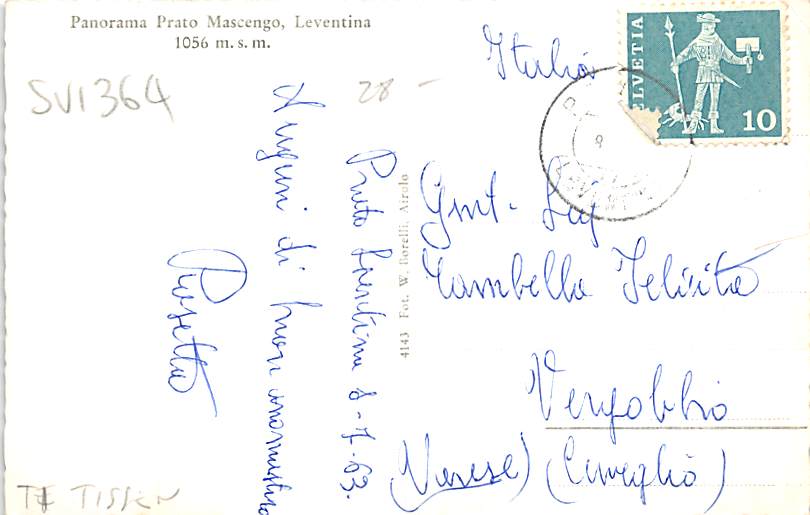 Panorama Prato Mascengo, Leventina
1056 m. s. m.
SVI364
28 -
Prato Leventina 8-7-63.
Auguri di buon onomastico
Rosetta
TI TISSEN
4143 Fot. W. Borelli, Airolo
HELVETIA
10
8
Italia
Gent. Sig
Zambella Felicita
Vergobbio
(Varese) (Cuveglio)